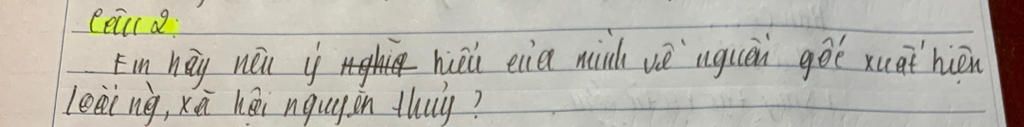 Câu 2:
Em hãy nêu ý nghĩa hiểu của mình về nguồn gốc xuất hiện
loài ng, xã hội nguyên thuỷ?